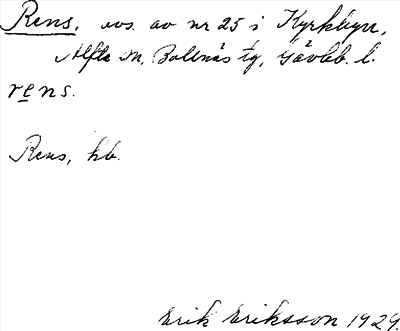 Rens, evs. av nr 25 i Kyrkbyn,
Alfta sn, Bollnäs tg, Gävleb. l.
rens.
Rens, kb.
Erik Eriksson 1929.